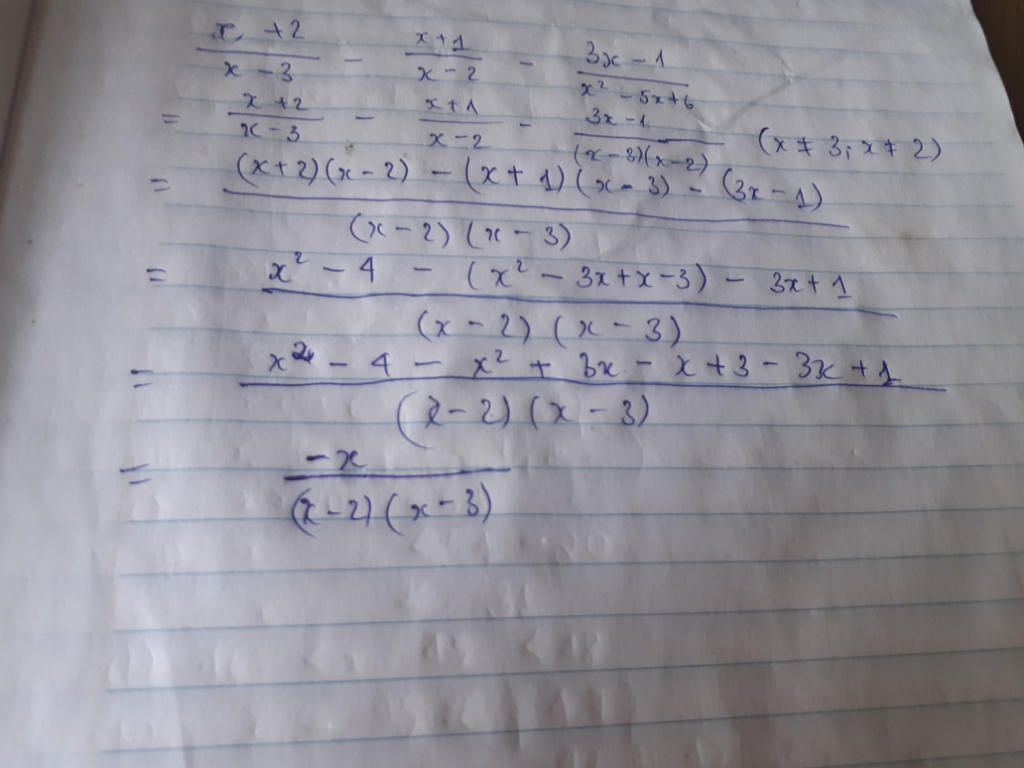 (x + 2)/(x - 3) - (x + 1)/(x - 2) - (3x - 1)/(x² - 5x + 6)
= (x + 2)/(x - 3) - (x + 1)/(x - 2) - (3x - 1)/((x - 3)(x - 2)) (x ≠ 3; x ≠ 2)
= ((x + 2)(x - 2) - (x + 1)(x - 3) - (3x - 1))/((x - 2)(x - 3))
= (x² - 4 - (x² - 3x + x - 3) - 3x + 1)/((x - 2)(x - 3))
= (x² - 4 - x² + 3x - x + 3 - 3x + 1)/((x - 2)(x - 3))
= (-x)/((x - 2)(x - 3))